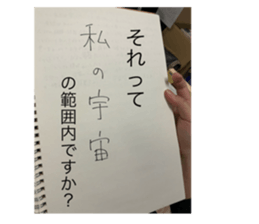 それって
私の宇宙
の範囲内ですか?